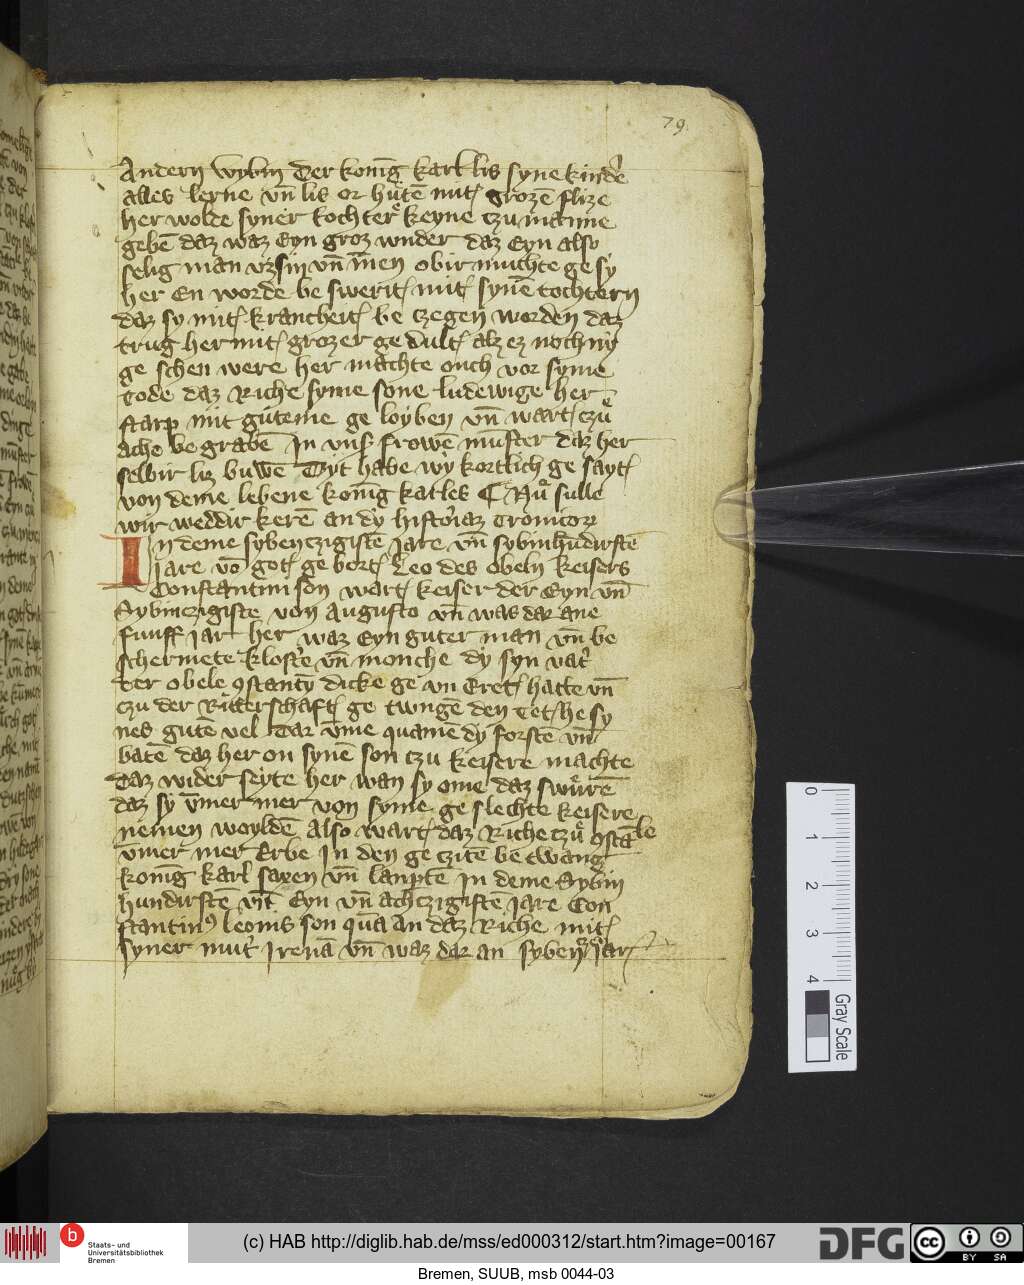 79.
Andern wybin Der konīg karl lis syne kindˀ
alles lerne vn̄ lis or hutē mit grozē flize
her wolde syner tochter keyne czu manne
gebē daz waz Eyn groz wnder daz Eyn also
selig man vz sin vn̄ īnen obir muchte ge sy
her En worde be swerit mit synē tochtern
daz sy mit krancheit be czegen worden daz
trug her mit grozer ge dult alz ez noch ny
ge schen were her machte ouch vor syme
tode daz Riche syme sone ludewige her
starp mit guteme ge loyben vn̄ wart czu
ache be grabē In vnsˀ frowē munster daz her
selbir liz buwē Dyt habe wy kortlich ge sayt
von deme lebene konīg karles Nu sulle
wir weddir kerē an dy historiaz Cronicor
In deme sybenczigistē Jare vn̄ sybinhūdirstē
Jare vō got ge bort Leo des obeln keisers
Constantini son wart keiser der Eyn vn̄
Sybinczigiste von Augusto vn̄ was dar ane
funff Jar her waz Eyn guter man vn̄ be
schermete klostˀe vn̄ monche dy syn vatˀ
der obele 9stanty dicke ge vn Eret hatte vn̄
czu der Ritterschaft ge twngē den tet he sy
nes gutē vel Dar v̄me quamē dy forstē vn̄
batē daz her on synē son czu keisere machte
Daz wider seyte her wan sy ome daz swurē
daz sy v̄mer mer von syme ge slechte keisere
nemen woyldē Also wart daz Riche czu 9stāle
v̄mer mer Erbe In den ge czitē be twang
konīg karl saxen vn̄ lanptē In deme Sybin
hundirstē vn̄ Eyn vn̄ achczigistē Jare Con
stantin9 leonis son quā an daz Riche mit
syner mutˀ Irenā vn̄ waz dar an syben Jar
0
1
2
3
4
Gray Scale
b
Staats- und
Universitätsbibliothek
Bremen
(c) HAB http://diglib.hab.de/mss/ed000312/start.htm?image=00167
DFG
cc
BY SA
Bremen, SUUB, msb 0044-03